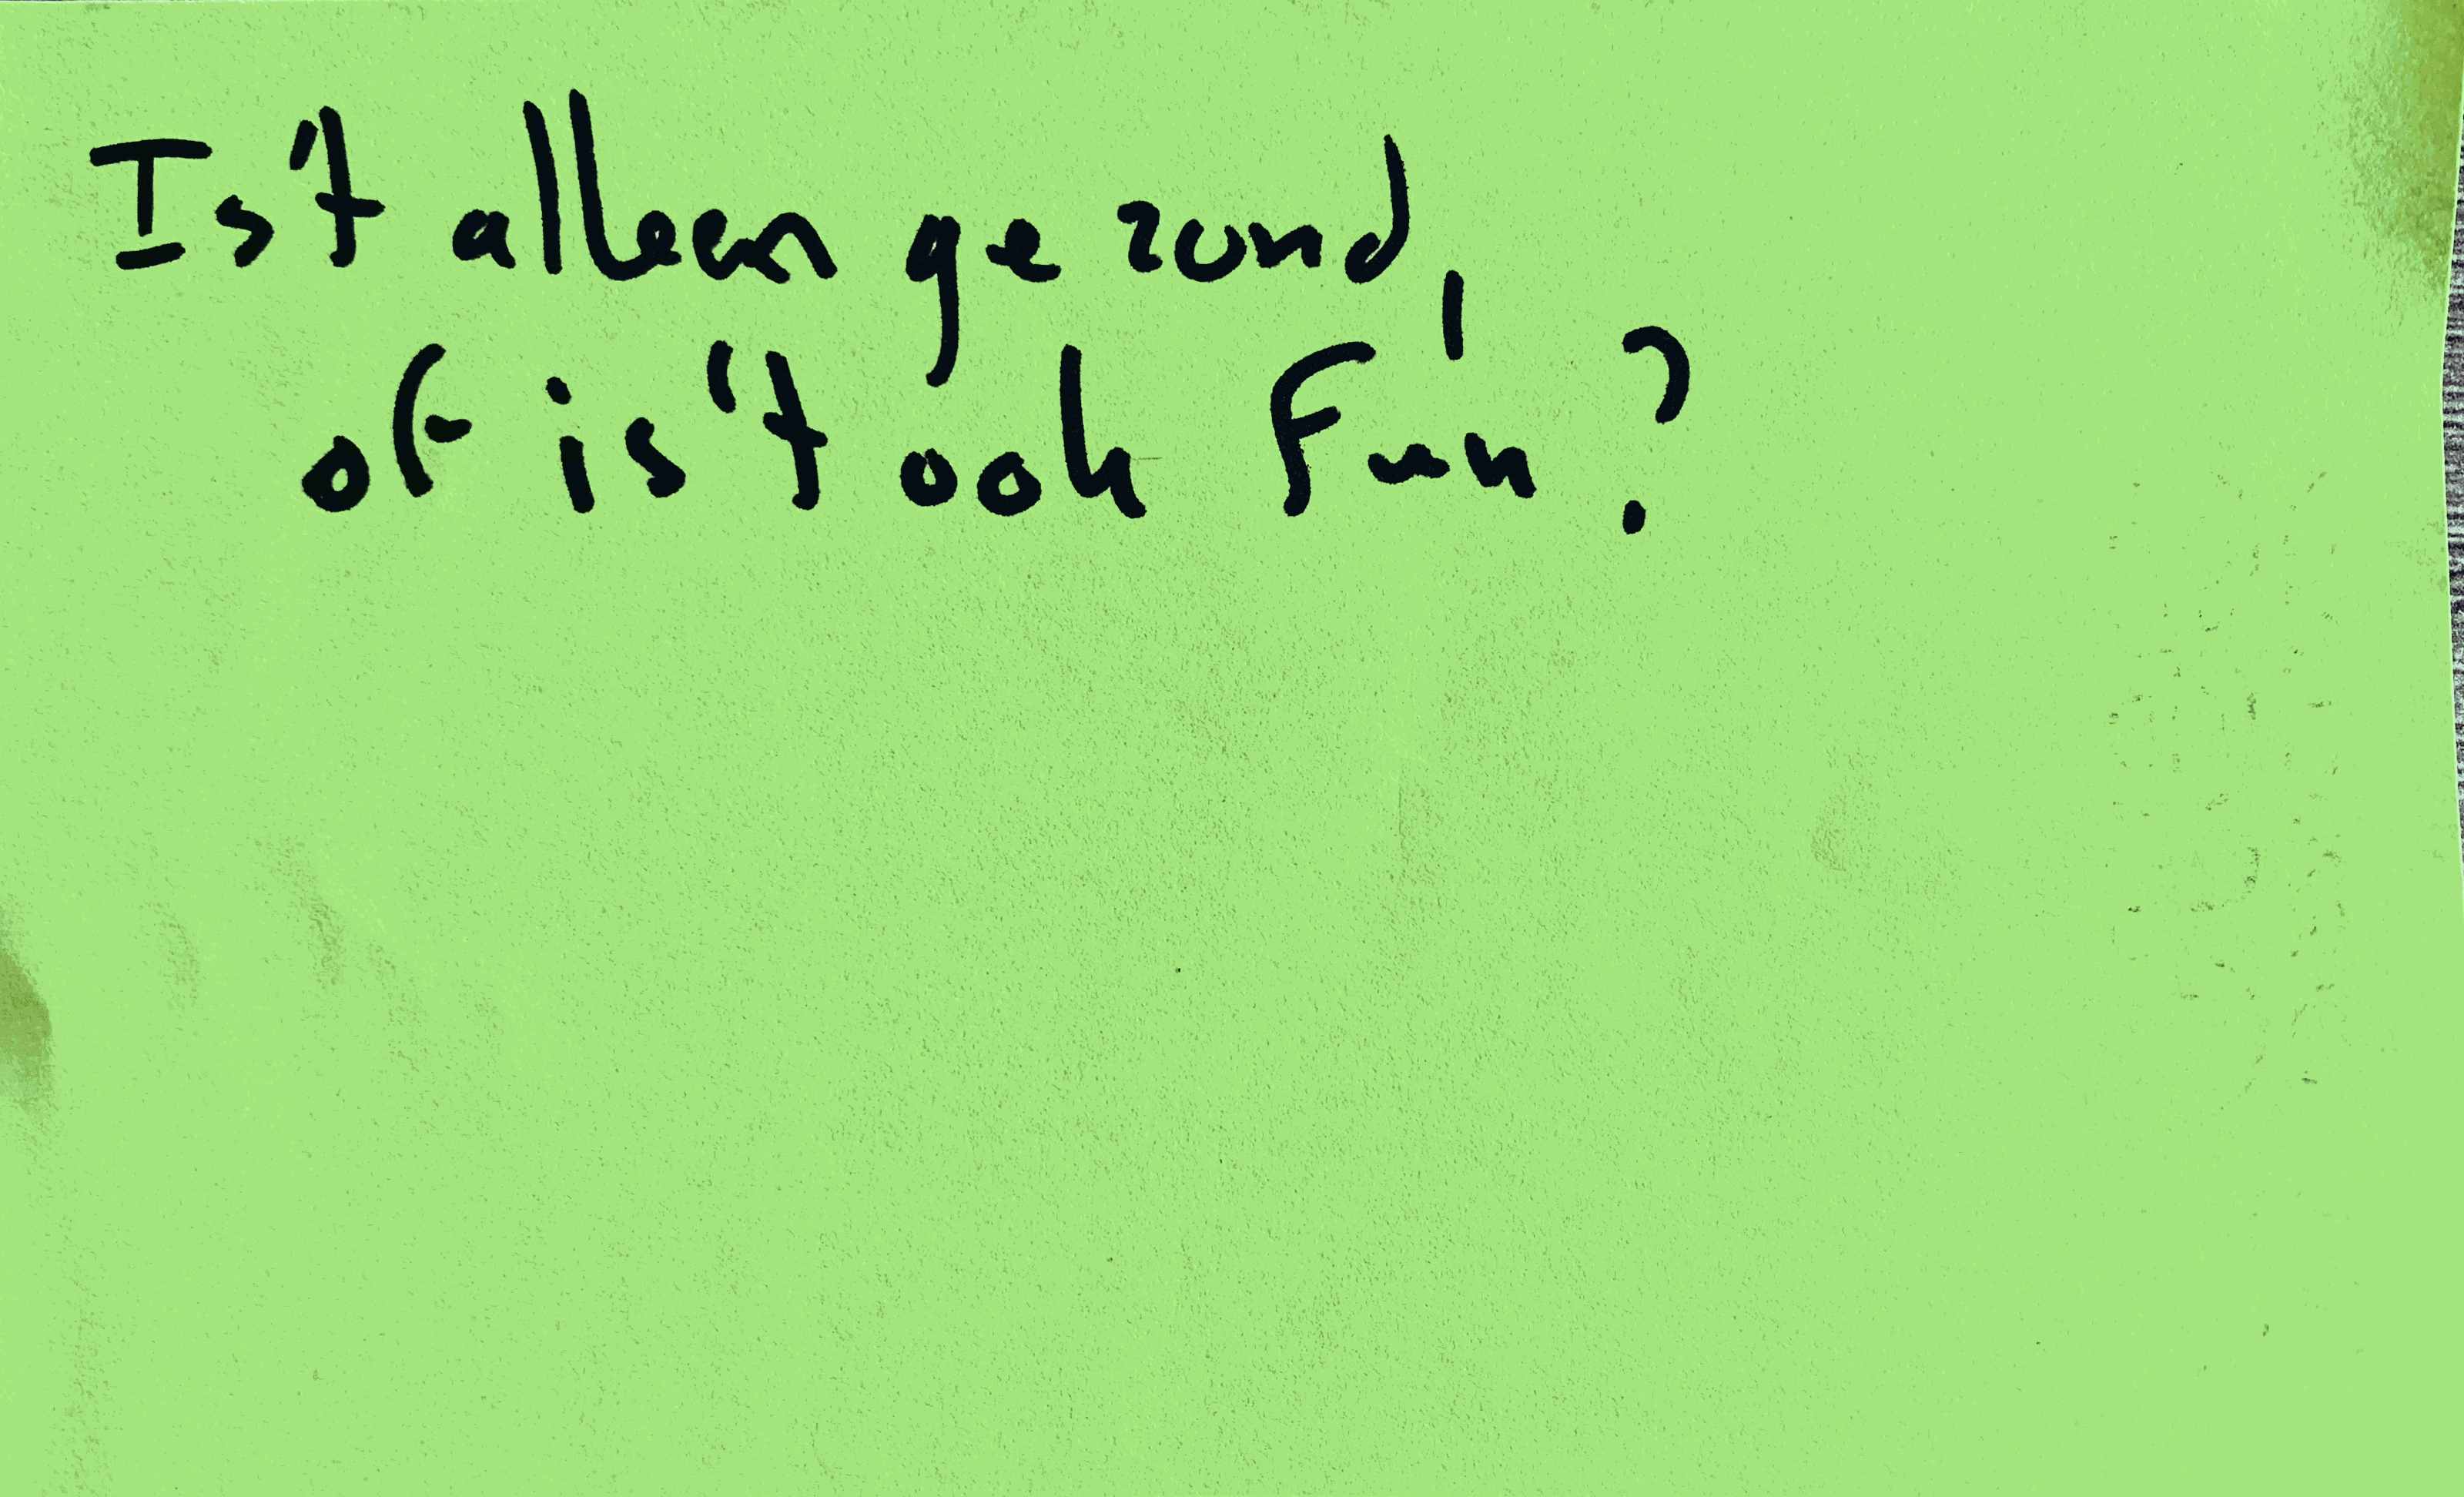 Is't alleen gezond,
of is't ook Fun?